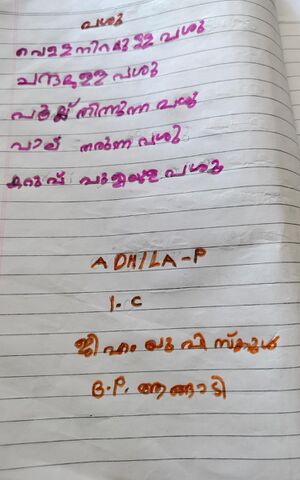 പശു
വെള്ളനിറമുള്ള പശു
ചന്തമുള്ള പശു
പുല്ല് തിന്നുന്ന പശു
പാല് തരുന്ന പശു
കറുപ്പ് പുള്ളിയുള്ള പശു
ADHILA-P
1. C
ജി എം യു പി സ്കൂൾ
B.P. അങ്ങാടി